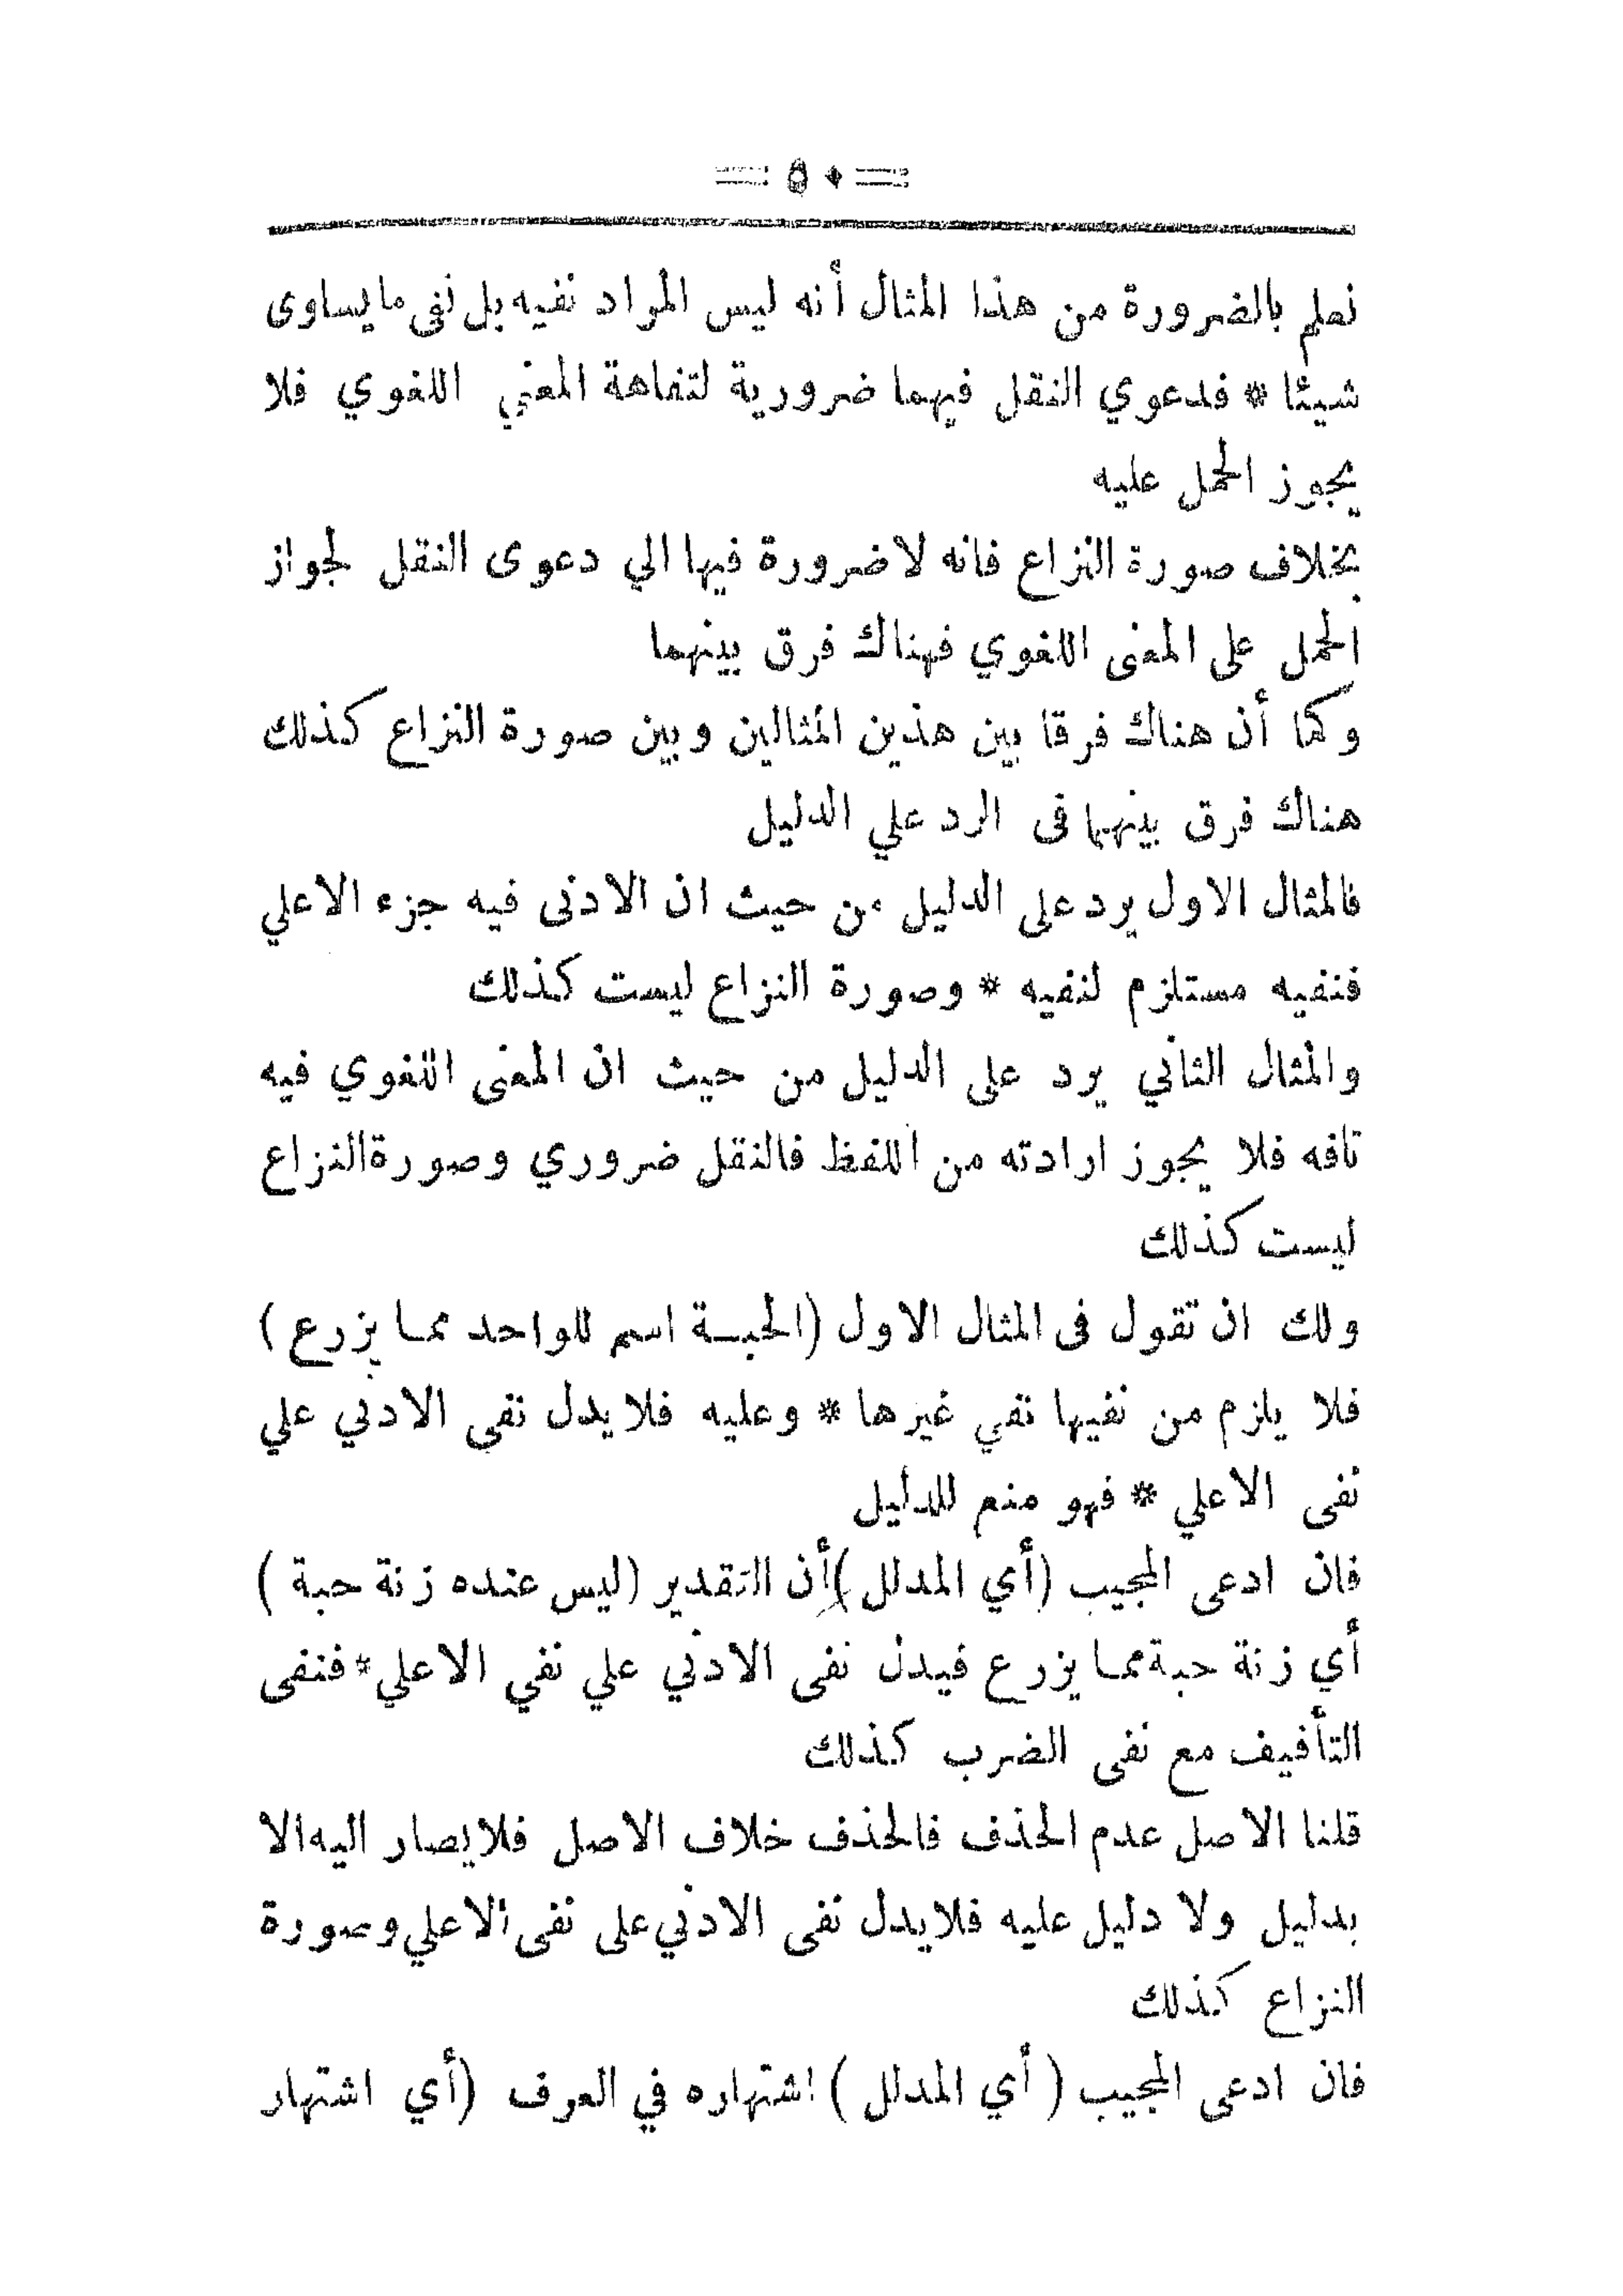 = ٥٠ =
نعلم بالضرورة من هذا المثال أنه ليس المراد نفيه بل نفى ما يساوى
شيئا * فدعوي النقل فيهما ضرورية لتفاهة المعني اللغوي فلا
يجوز الحمل عليه
بخلاف صورة النزاع فانه لا ضرورة فيها الي دعوى النقل لجواز
الحمل على المعنى اللغوي فهناك فرق بينهما
وكما أن هناك فرقا بين هذين المثالين وبين صورة النزاع كذلك
هناك فرق بينهما فى الرد علي الدليل
فالمثال الاول يرد على الدليل من حيث ان الادنى فيه جزء الاعلي
فنفيه مستلزم لنفيه * وصورة النزاع ليست كذلك
والمثال الثاني يرد على الدليل من حيث ان المعنى اللغوي فيه
تافه فلا يجوز ارادته من اللفظ فالنقل ضروري وصورة النزاع
ليست كذلك
ولك ان تقول فى المثال الاول (الحبة اسم للواحد مما يزرع)
فلا يلزم من نفيها نفي غيرها * وعليه فلا يدل نفى الادني علي
نفى الاعلي * فهو منع للدليل
فان ادعى المجيب (أي المدلل) أن التقدير (ليس عنده زنة حبة)
أي زنة حبة مما يزرع فيدل نفى الادني علي نفي الاعلي * فنفى
التأفيف مع نفى الضرب كذلك
قلنا الاصل عدم الحذف فالحذف خلاف الاصل فلا يصار اليه الا
بدليل ولا دليل عليه فلا يدل نفى الادني على نفى الاعلي وصورة
النزاع كذلك
فان ادعى المجيب (أي المدلل) اشتهاره في العرف (أي اشتهار